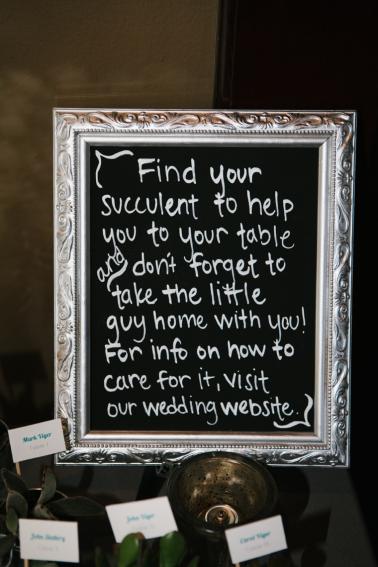 Find your
succulent to help
you to your table
and don't forget to
take the little
guy home with you!
For info on how to
care for it, visit
our wedding website.
Mark Viger
John Viger
Carol Viger